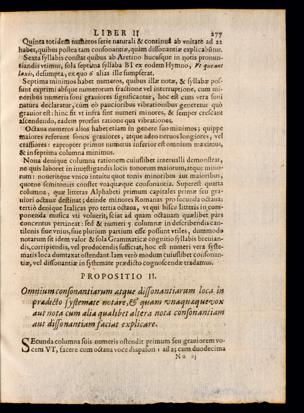 LIBER II 277
Quinta totidem numeros serie naturali & continuâ ab unitate ad 22
habet, quibus postea tam consonantiæ, quàm dissonantiæ explicabuntur.
Sexta syllabis constat quibus ab Aretino hucusque in notis pronun-
tiandis utimur, sola septima syllaba BI ex eodem Hymno,
laxis, desumpta, ex quo 6 aliæ ille sumpserat.
Septima minimos habet numeros, quibus illæ notæ, & syllabæ pos-
sunt exprimi absque numerorum fractione vel interruptione, cum mi-
noribus numeris soni graviores significantur, hoc est cum vera soni
natura declaratur, cùm eò paucioribus vibrationibus generetur quò
gravior est: hinc fit ut infra sint numeri minores, & semper crescant
ascendendo, eadem prorsus ratione qua vibrationes.
Octava numeros alios habet etiam in genere suo minimos; quippe
maiores referunt sonos graviores, atque adeo nervos longiores, vel
crassiores: eapropter primus numerus inferior est omnium maximus,
& in septima columna minimus.
Nona denique columna rationem cuiuslibet intervalli demonstrat,
ne quis laboret in investigandis locis tonorum maiorum, atque mino-
rum: noveritque unico intuitu quot tonis minoribus aut maioribus,
quotne semitoniis constet
columna, quæ litteras Alphabeti primum capitales primæ seu gra-
viori octavæ destinat; deinde minores Romanas pro secunda octava;
tertiò denique Italicas pro tertia octava, ut qui hisce litteris in com-
ponenda musica uti voluerit, sciat ad quam octavam quælibet pars
concentus pertineat: sed & numeri 5 columnæ in describendis can-
tilenis sive unius, sive plurium partium esse possunt utiles, dummodo
notarum sit idem valor & sola Grammaticæ cognitio syllabis brevian-
dis, corripiendis, vel producendis sufficiat, hoc est numeri vera syste-
matis loca dumtaxat ostendant. Iam verò modum cuiuslibet consonan-
tiæ, vel dissonantiæ in systemate prædicto cognoscendæ tradamus.
PROPOSITIO II.
Omnium consonantiarum atque dissonantiarum loca in
prædicto systemate notare, & quam unaquæque vox
aut nota cum alia qualibet altera nota consonantiam
aut dissonantiam faciat explicare.
SEcunda columna suis numeris ostendit primum seu graviorem vo-
cem VT, facere cum octava voce diapason 1 ad 2; cum duodecima
Nn ij